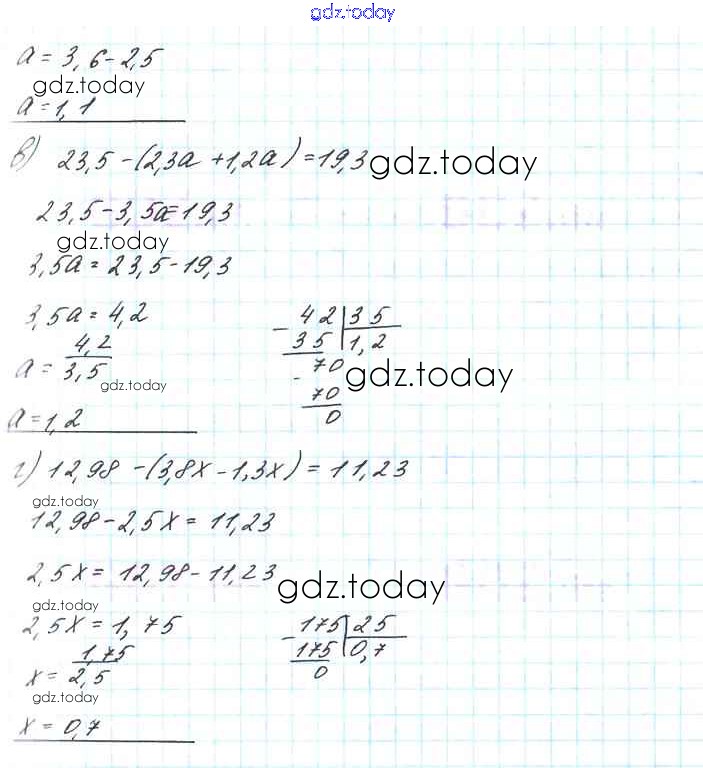 gdz.today
a = 3,6 - 2,5
gdz.today
a = 1,1
в) 23,5 - (2,3a + 1,2a) = 19,3
gdz.today
23,5 - 3,5a = 19,3
gdz.today
3,5a = 23,5 - 19,3
3,5a = 4,2
a = 4,2/3,5
gdz.today
- 42 | 35
35 | 1,2
- 70
70
0
gdz.today
a = 1,2
г) 12,98 - (3,8x - 1,3x) = 11,23
gdz.today
12,98 - 2,5x = 11,23
2,5x = 12,98 - 11,23
gdz.today
gdz.today
2,5x = 1,75
x = 1,75/2,5
gdz.today
- 175 | 25
175 | 0,7
0
x = 0,7